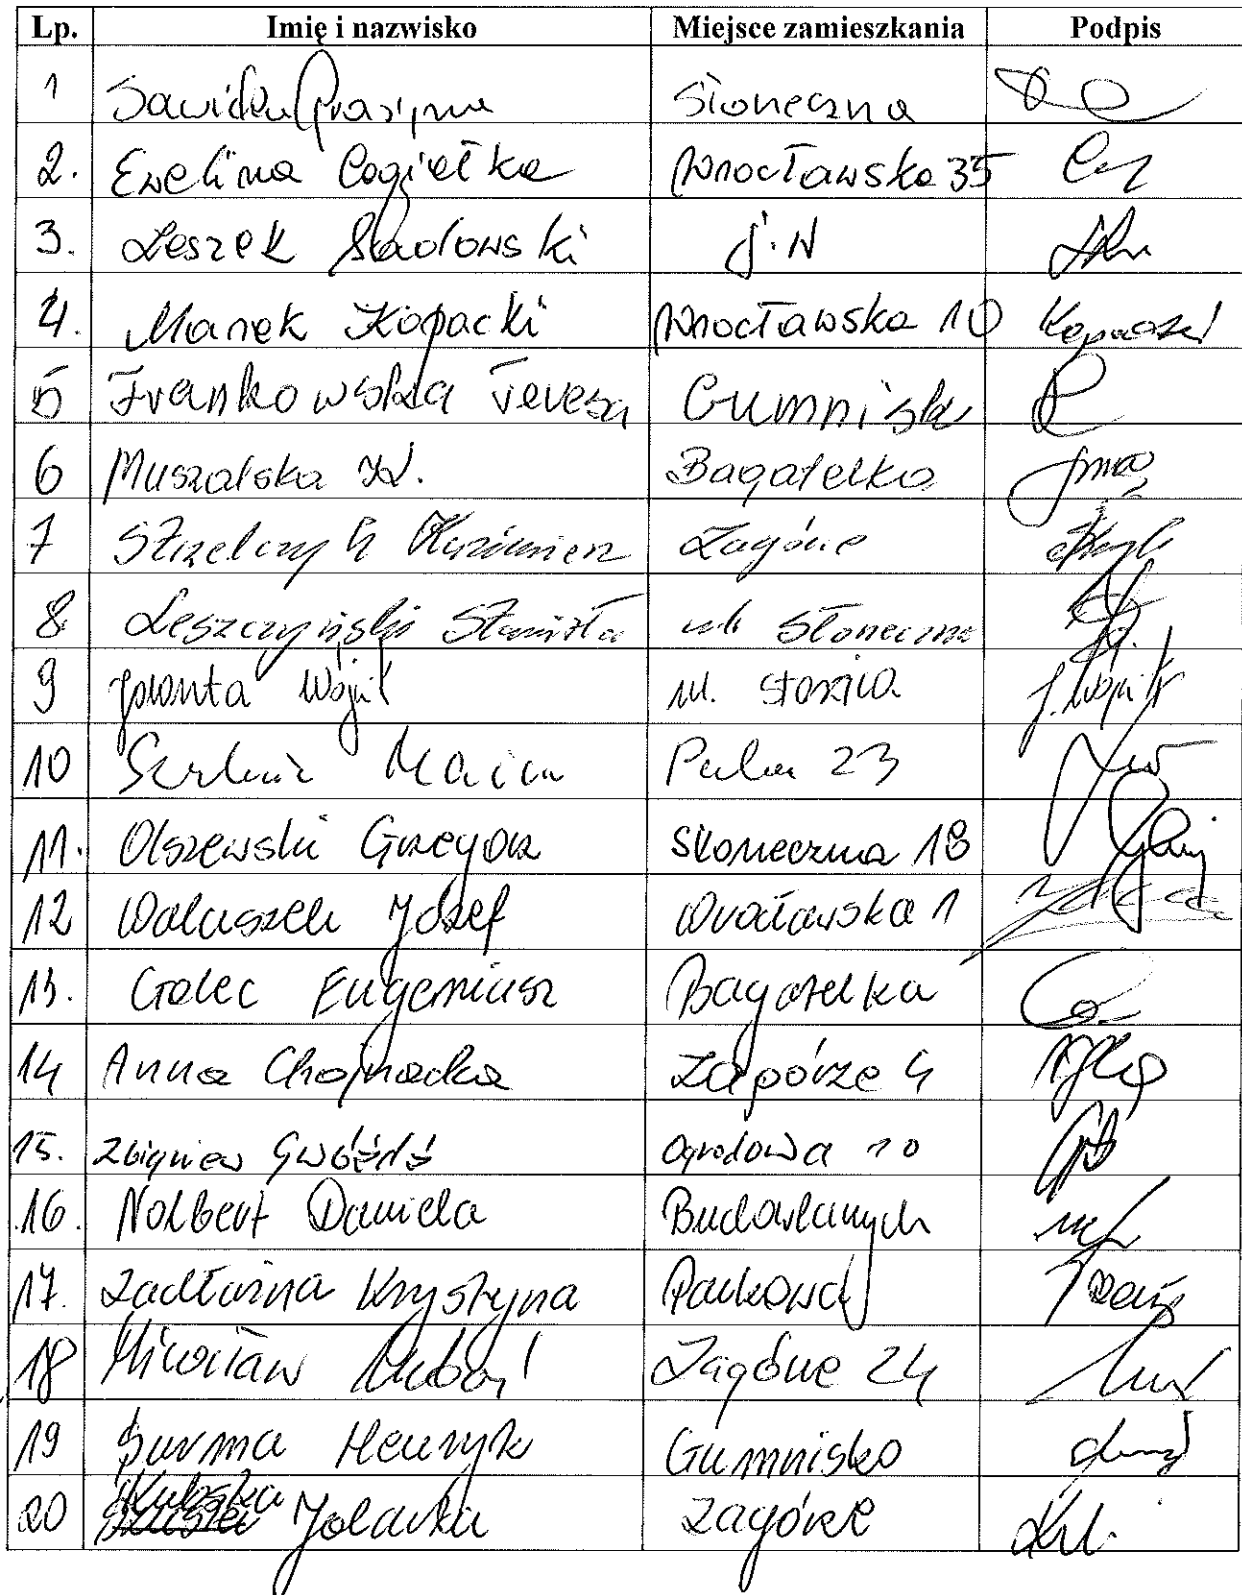 Lp. Imię i nazwisko Miejsce zamieszkania Podpis
1 Sawicka Grażyna Słoneczna
2. Ewelina Cogiełka Wrocławska 35
3. Leszek Sladowski J.N
4. Marek Kopacki Wrocławska 10 Kopacki
5 Frankowska Teresa Gumnisk
6 Muszalska W. Bagatelka
7 Strzelczyk Kazimierz Zagórze
8. Leszczyński Stanisła ul. Słoneczna
9 Jolanta Wójcik ul. J. Wójcik
10 23
11. Olszewski Grzegorz Słoneczna 18
12 Waluszek Józef Wrocławska 1
13. Golec Eugeniusz Bagatelka
14 Anna Chojnacka Zagórze 4
15. Zbigniew Gwóźdź Ogrodowa 10
16. Nolbert Daniela Budowlanych
17. Zadłużna Krystyna Parkowa
18 Mirosław Zagórze 24
19 Surma Henryk Gumnisko
20 Kubska Jolanta Zagórze